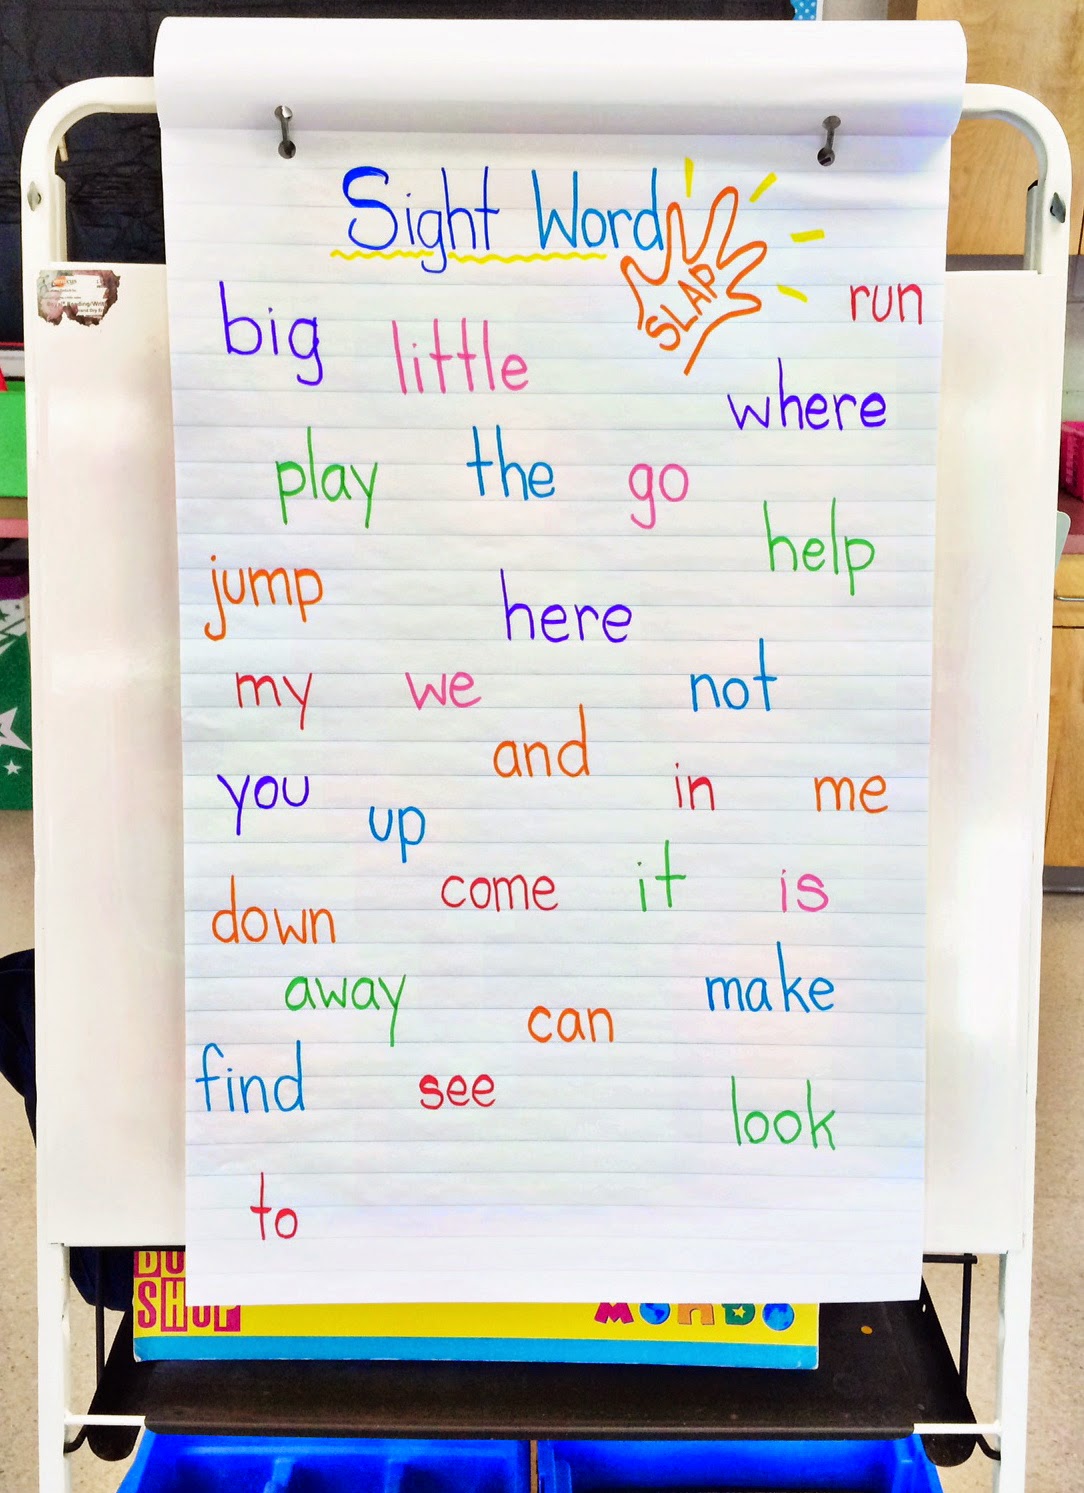 Sight Word
SLAP
run
big little
where
play the go
help
jump here
my we not
and
you up in me
down come it is
away can make
find see look
to
SHOP MONDO